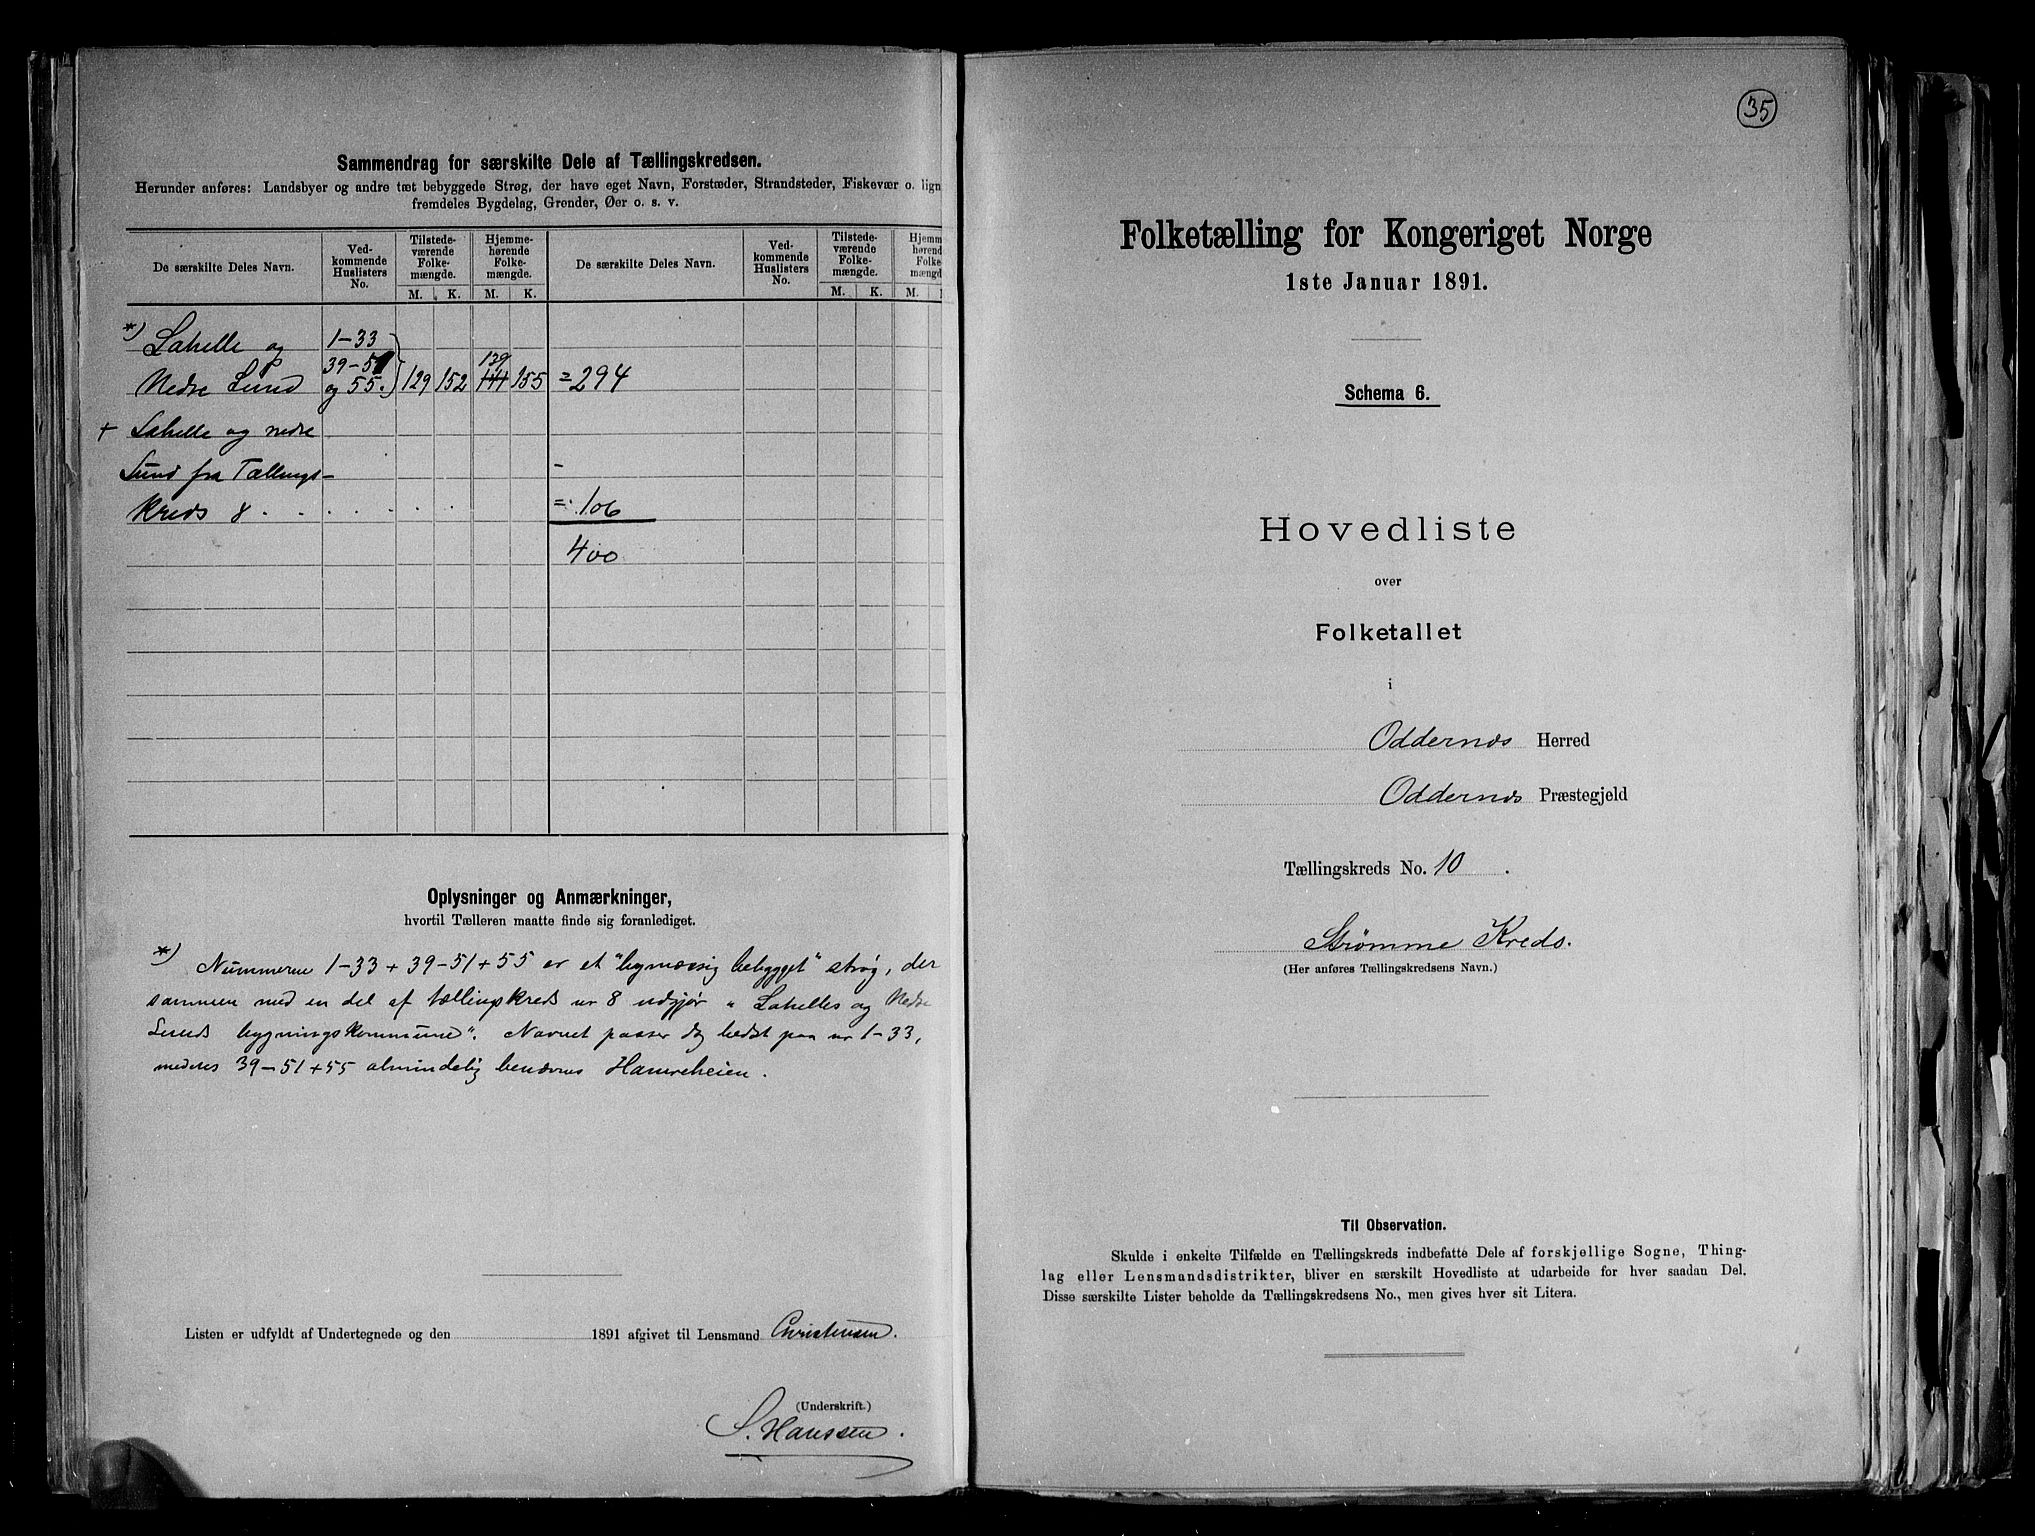 Sammendrag for særskilte Dele af Tællingskredsen.
Herunder anføres: Landsbyer og andre tæt bebyggede Strøg, der have eget Navn, Forstæder, Strandsteder, Fiskevær o. lign
fremdeles Bygdelag, Grender, Øer o. s. v.
De særskilte Deles Navn. Ved-kommende Huslisters No. Tilstede-værende Folke-mængde. Hjemme-hørende Folke-mængde. De særskilte Deles Navn. Ved-kommende Huslisters No. Tilstede-værende Folke-mængde. Hjemm hørend Folke- mængd
M. K. M. K. M. K. M.
*) Lahelle og 1-33
39-51 139
Nedre Lund og 55. 129 152 141 155 = 294
+ Lahelle og nedre
Lund fra Tællings-
kreds 8 . . . . . . = 106
400
Oplysninger og Anmærkninger,
hvortil Tælleren maatte finde sig foranlediget.
*) Nummerne 1-33 + 39-51 + 55 er et "bymæssig bebygget" strøg, der
sammen med en del af tællingskreds nr 8 udgjør "Lahelles og Nedre
Lunds bygningskommune". Navnet passer dog bedst paa nr 1-33,
medens 39-51+55 almindelig benævnes Hamreheien.
Listen er udfyldt af Undertegnede og den 1891 afgivet til Lensmand Christensen.
(Underskrift.)
S. Hanssen.
35
Folketælling for Kongeriget Norge
1ste Januar 1891.
Schema 6.
Hovedliste
over
Folketallet
i
Oddernæs Herred
Oddernæs Præstegjeld
Tællingskreds No. 10.
Strømme Kreds.
(Her anføres Tællingskredsens Navn.)
Til Observation.
Skulde i enkelte Tilfælde en Tællingskreds indbefatte Dele af forskjellige Sogne, Thing-
lag eller Lensmandsdistrikter, bliver en særskilt Hovedliste at udarbeide for hver saadan Del.
Disse særskilte Lister beholde da Tællingskredsens No., men gives hver sit Litera.